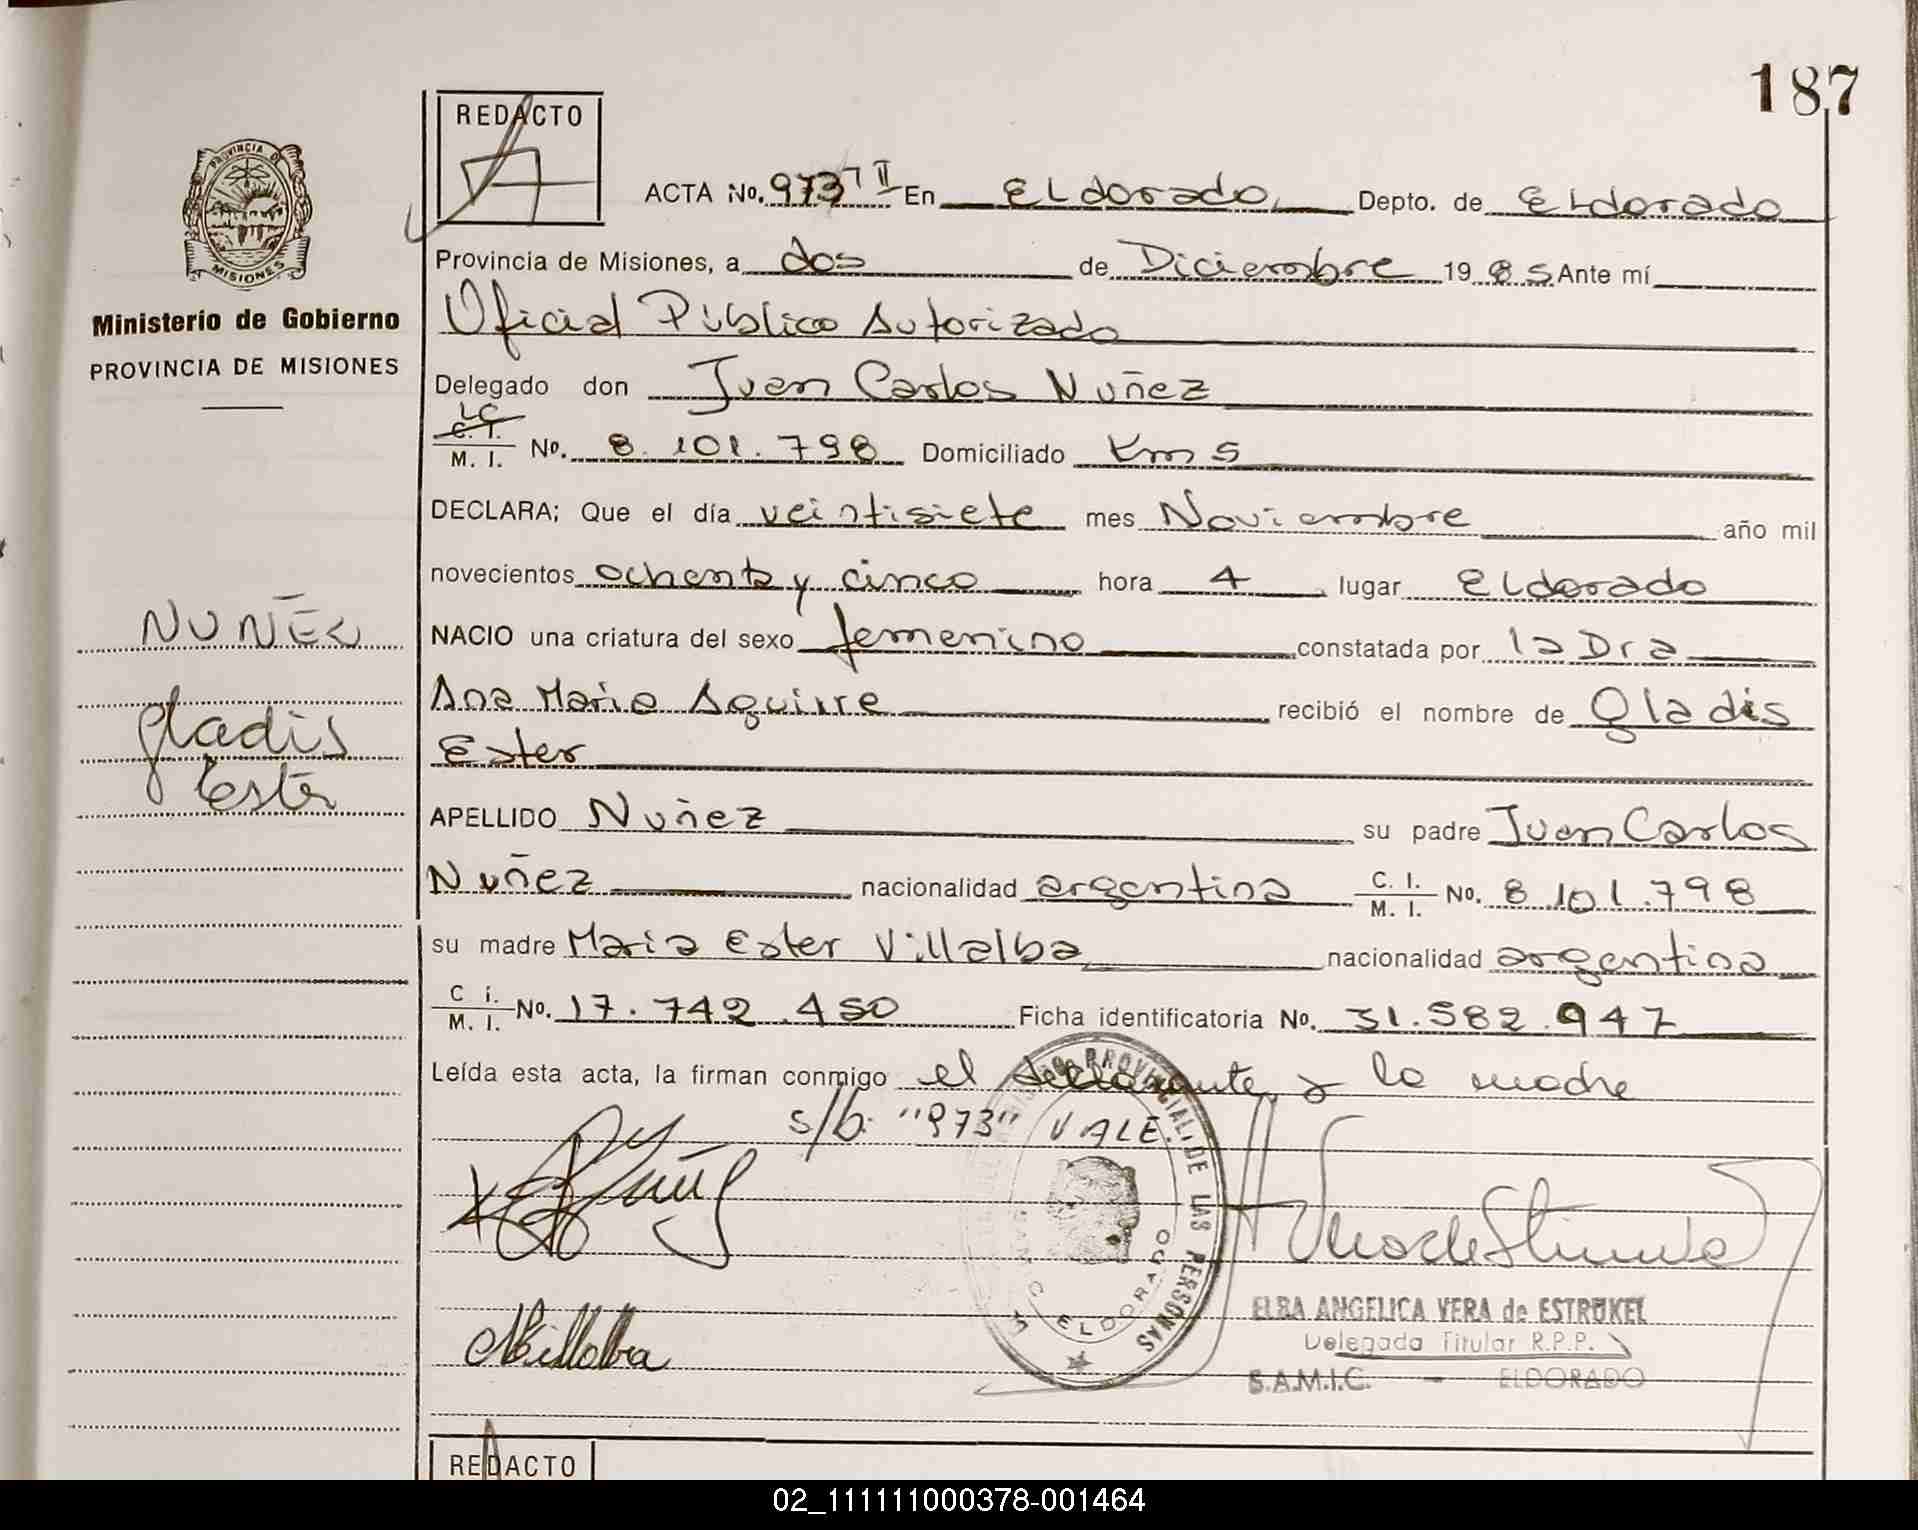 187
REDACTO
ACTA No. 973 T II En Eldorado, Depto. de Eldorado
PROVINCIA DE
MISIONES
Provincia de Misiones, a dos de Diciembre 1985 Ante mí
Ministerio de Gobierno
Oficial Público Autorizado
PROVINCIA DE MISIONES
Delegado don Juan Carlos Nuñez
LC
C. I.
M. I. No. 8.101.798 Domiciliado Km 5
DECLARA; Que el día veintisiete mes Noviembre año mil
novecientos ochenta y cinco hora 4 lugar Eldorado
NUÑEZ
NACIO una criatura del sexo femenino constatada por la Dra
Ana Maria Aguirre recibió el nombre de Gladis
Gladis
Ester
Ester
APELLIDO Nuñez su padre Juan Carlos
Nuñez nacionalidad argentina C. I. M. I. No. 8.101.798
su madre Maria Ester Villalba nacionalidad argentina
C i. M. I. No. 17.742.450 Ficha identificatoria No. 31.582.947
Leída esta acta, la firman conmigo el declarante y la madre
s/b. "973" VALE.
PROVINCIAL DE LAS PERSONAS
ELDORADO
ELBA ANGELICA VERA de ESTRUKEL
Delegada Titular R.P.P.
S.A.M.I.C. - ELDORADO
MVillalba
REDACTO
02_111111000378-001464